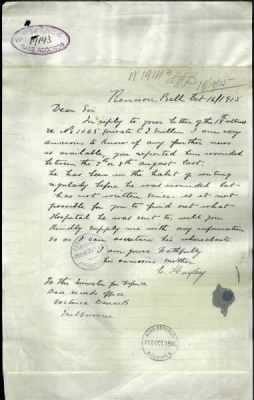 19143
BASE RECORDS
Renison Bell Oct 18/1915
Dear Sir
In reply to your letter of the 13th ultimo
re No 1065 private C J Miller I am very
anxious to know of any further news
as available, you reported him wounded
between the 7th or 8th August last.
he has been in the habit of writing
regularly before he was wounded but
has not written since. is it not
possible for you to find out what
Hospital he was sent to, will you
Kindly supply me with any information
so as I can ascertain his whereabouts
I am yours Faithfully
his anxious mother
E Hayley
To the Minister for Defence
Base records office
Victoria Barracks
Melbourne